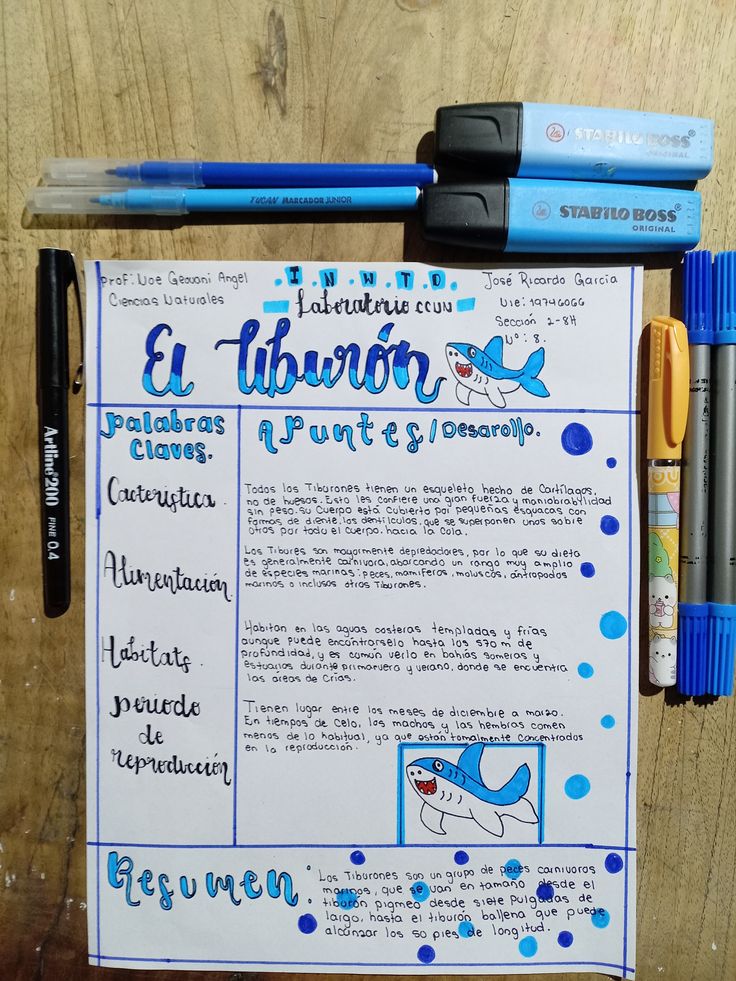 STABILO BOSS®
ORIGINAL
TUCAN MARCADOR JUNIOR
STABILO BOSS®
ORIGINAL
Artline®200
FINE 0.4
Prof: Noe Geovani Angel
Ciencias Naturales
. I. N. W. T. D.
Laboratorio CCNN
José Ricardo García
Nie: 19746066
Sección 2-8H
N°: 8.
El Tiburón
Palabras
Claves.
Apuntes/Desarollo.
Cacterística.
Todos los Tiburones tienen un esqueleto hecho de Cartílagos,
no de huesos. Esto les confiere una gran fuerza y maniobrabilidad
sin peso. su Cuerpo está cubierto por pequeñas esquacas con
formas de diente, los dentílculos, que se superponen unos sobre
otros por todo el cuerpo, hacia la cola.
Alimentación.
Los Tibures son mayormente depredadores, por lo que su dieta
es generalmente carnívora, abarcando un rango muy amplio
de especies marinas: peces, mamíferos, moluscos, antropodos
marinos o inclusos otros Tiburones.
Habitats.
Habitan en las aguas costeras templadas y frías
aunque puede encontrarselo hasta los 570 m de
profundidad, y es común verlo en bahías someras y
estuarios durante primarvera y verano, donde se encuentra
las áreas de Crias.
periodo
de
reproducción
Tienen lugar entre los meses de diciembre a marzo.
En tiempos de Celo, los machos y las hembras comen
menos de lo habitual, ya que están tomalmente Concentrados
en la reproducción.
Resumen:
Los Tiburones son un grupo de peces carnivoros
marinos, que se van en tamaño desde el
tiburón pigmeo desde siete Pulgadas de
largo, hasta el tiburón ballena que puede
alcanzar los 50 pies de longitud.